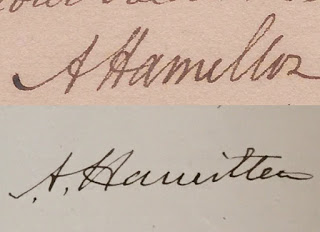 A Hamilton
A. Hamilton